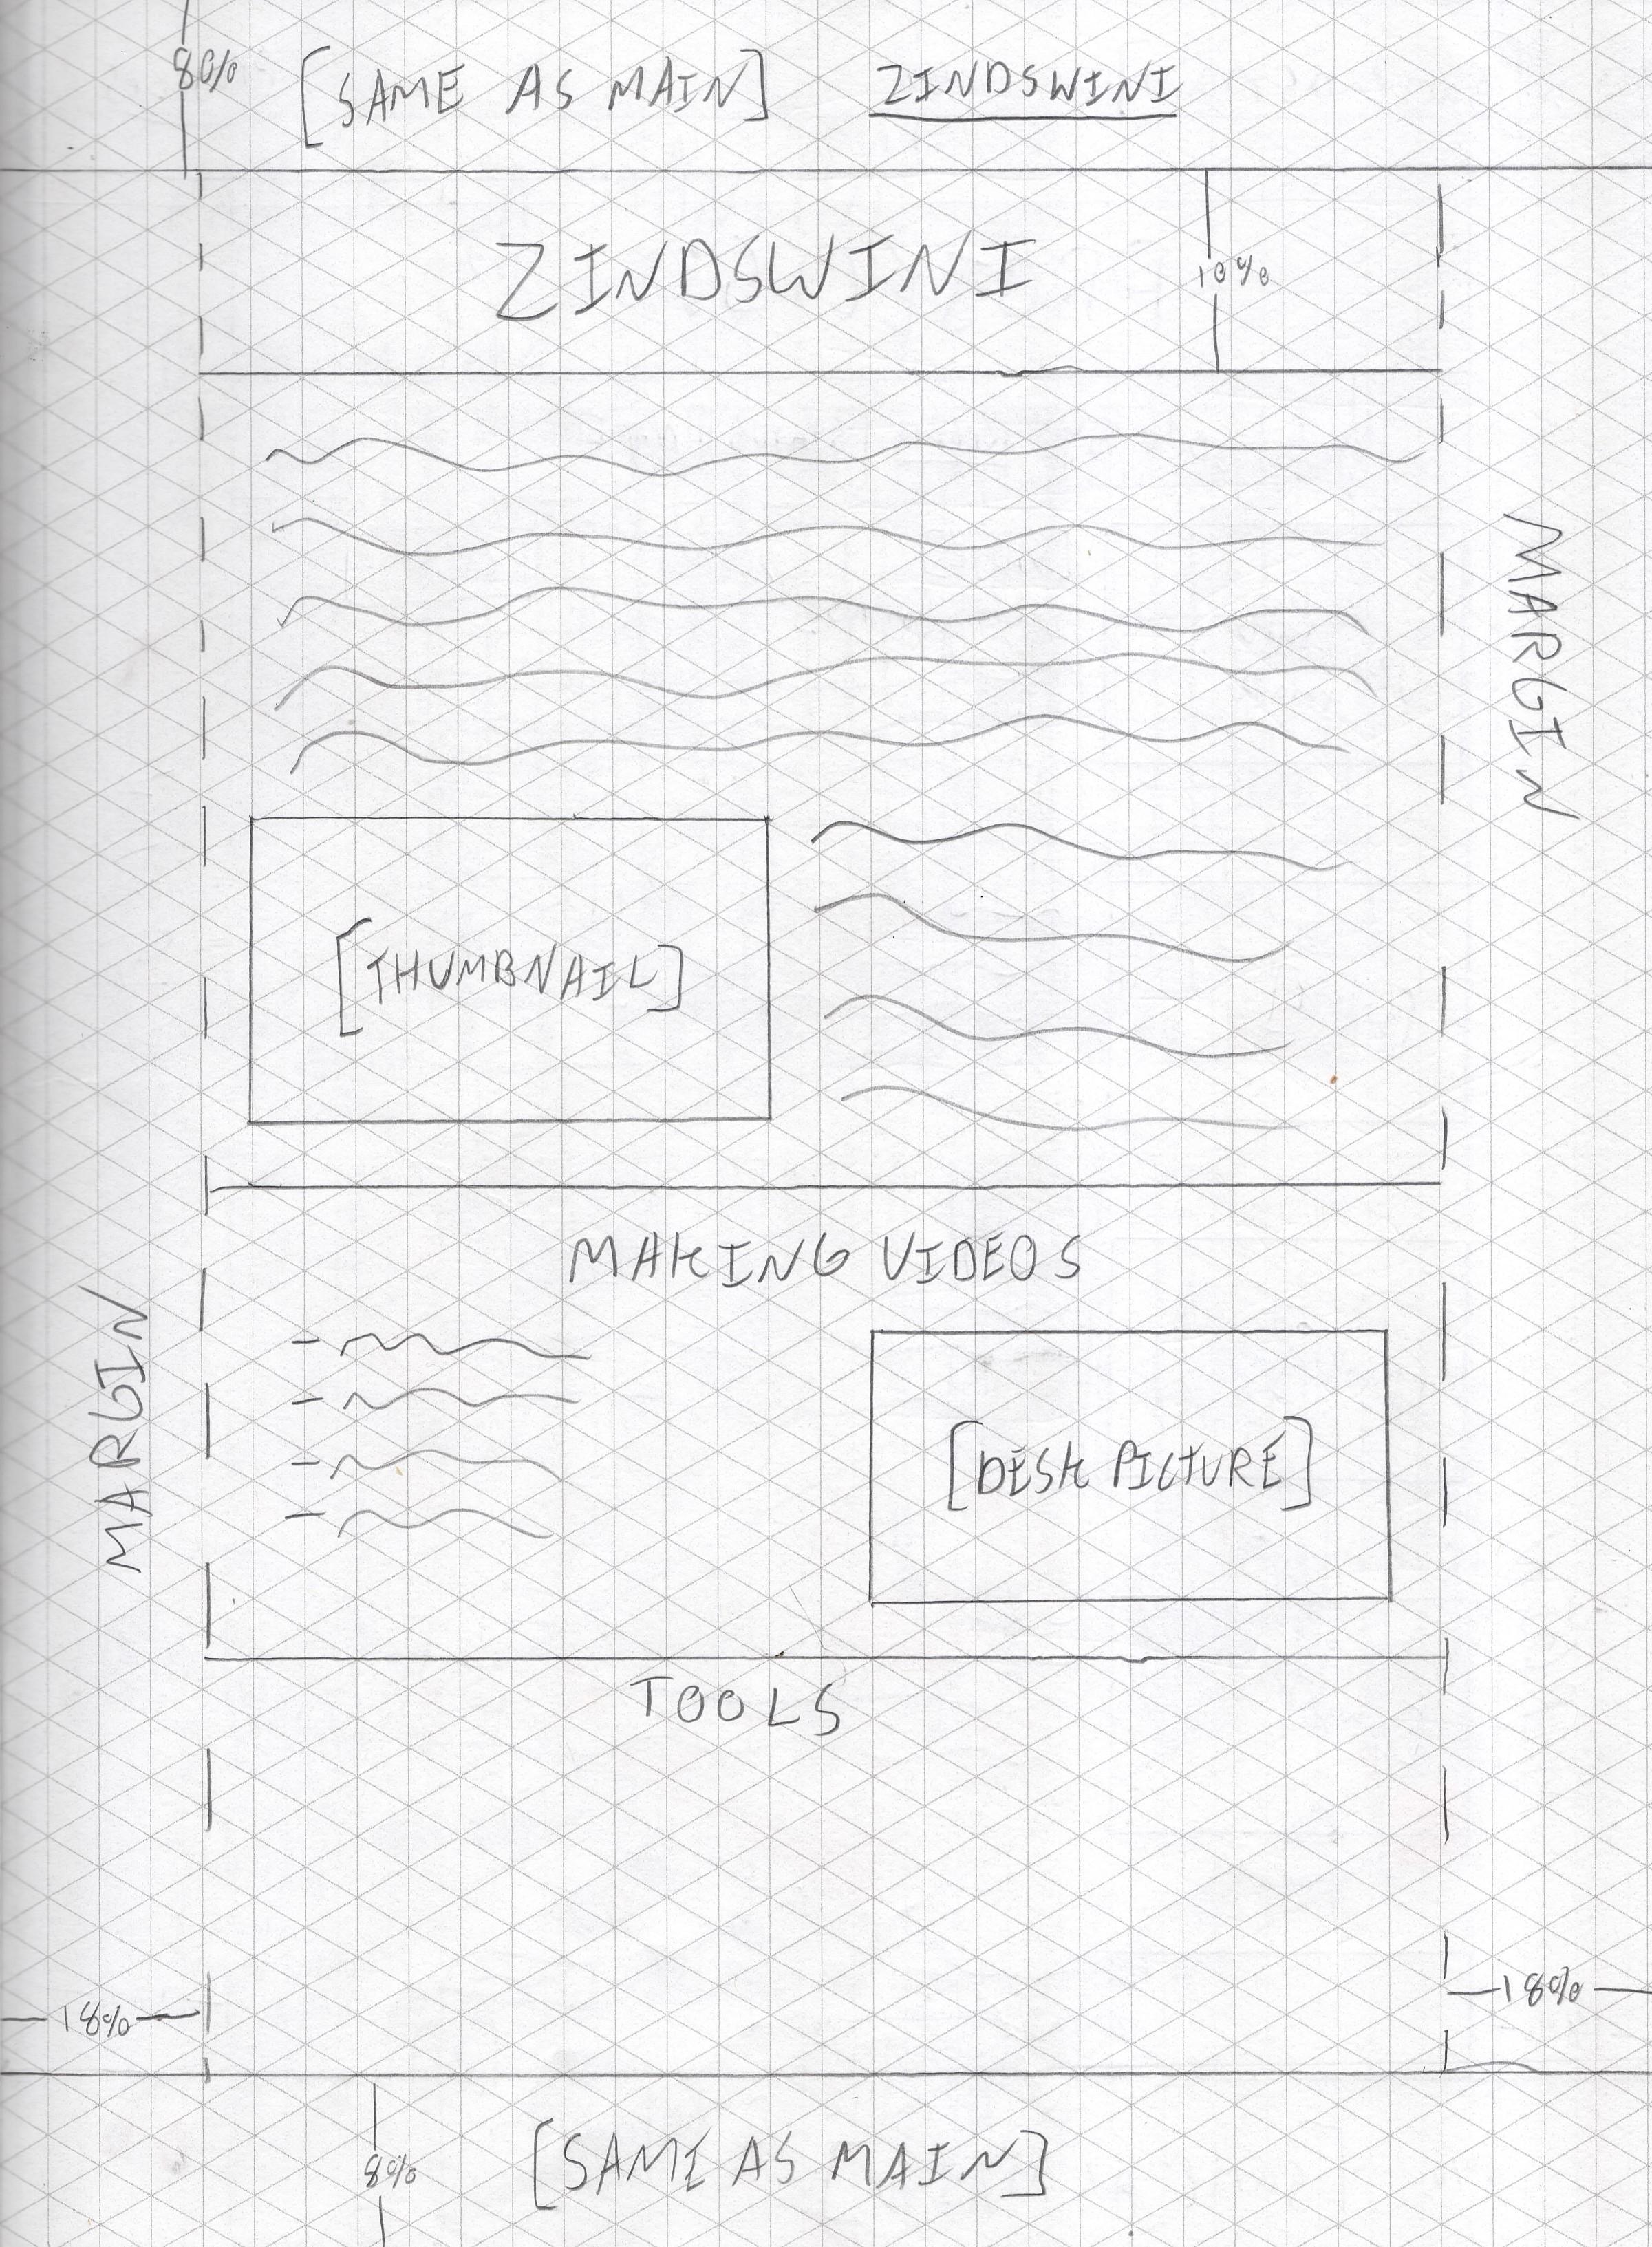 8%
[SAME AS MAIN] ZINDSWINI
ZINDSWINI
10%
MARGIN
[THUMBNAIL]
MAKING VIDEOS
MARGIN
[DESK PICTURE]
TOOLS
18%
18%
8%
[SAME AS MAIN]